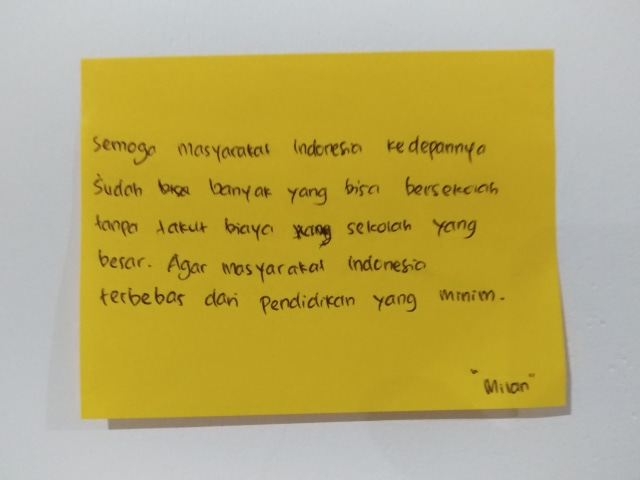 semoga masyarakat Indonesia kedepannya
sudah banyak yang bisa bersekolah
tanpa takut biaya sekolah yang
besar. Agar masyarakat Indonesia
terbebas dari pendidikan yang minim.
"Milan"